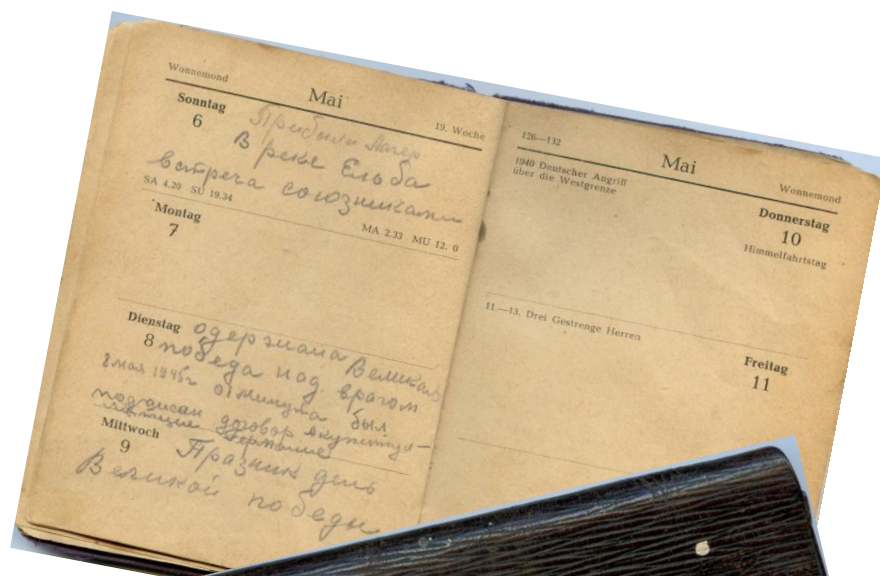 Wonnemond
Mai
19. Woche
Sonntag
6
Прибыли Лагер
В реке Ельба
встреча союзниками
SA 4.20 SU 19.34
MA 2.33 MU 12. 0
Montag
7
Dienstag
8
одержана Великая
победа над врагом
8 мая 1945г 01 минута был
подписан договор
Германие
Mittwoch
9
Празник день
Великой победы
126—132
Mai
Wonnemond
1940 Deutscher Angriff
über die Westgrenze
Donnerstag
10
Himmelfahrtstag
11.—13. Drei Gestrenge Herren
Freitag
11